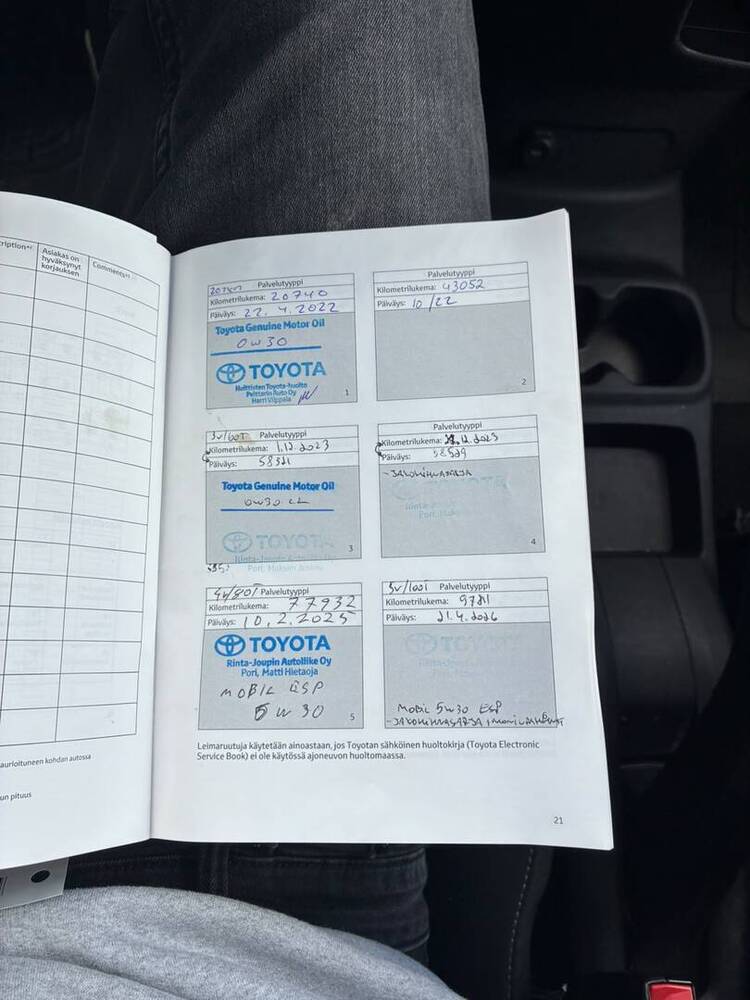 ription*⁾
Asiakas on
hyväksynyt
korjauksen
Comments*⁾
Palvelutyyppi
Kilometrilukema: 20740
Päiväys: 22.4.2022
Toyota Genuine Motor Oil
0W30
TOYOTA
Huittisten Toyota-huolto
Peltarin Auto Oy
Harri Vilppala
1
Palvelutyyppi
Kilometrilukema: 43052
Päiväys: 10/22
2
3v/60T Palvelutyyppi
Kilometrilukema: 1.12.2023
Päiväys:
Toyota Genuine Motor Oil
0W30
TOYOTA
3
Palvelutyyppi
Kilometrilukema:
Päiväys:
- JAKOHIHNASARJA
4
4v/80T Palvelutyyppi
Kilometrilukema: 77932
Päiväys: 10.2.2025
TOYOTA
Rinta-Joupin Autoliike Oy
Pori, Matti Hietaoja
MOBIL ESP
5W30
5
5v/100T Palvelutyyppi
Kilometrilukema:
Päiväys: 21.4.2026
Mobil 5W30 ESP
Leimaruutuja käytetään ainoastaan, jos Toyotan sähköinen huoltokirja (Toyota Electronic
Service Book) ei ole käytössä ajoneuvon huoltomaassa.
21
aurioituneen kohdan autossa
un pituus